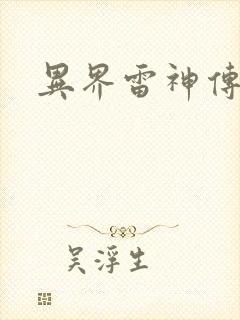 異界雷神傳
吴浮生